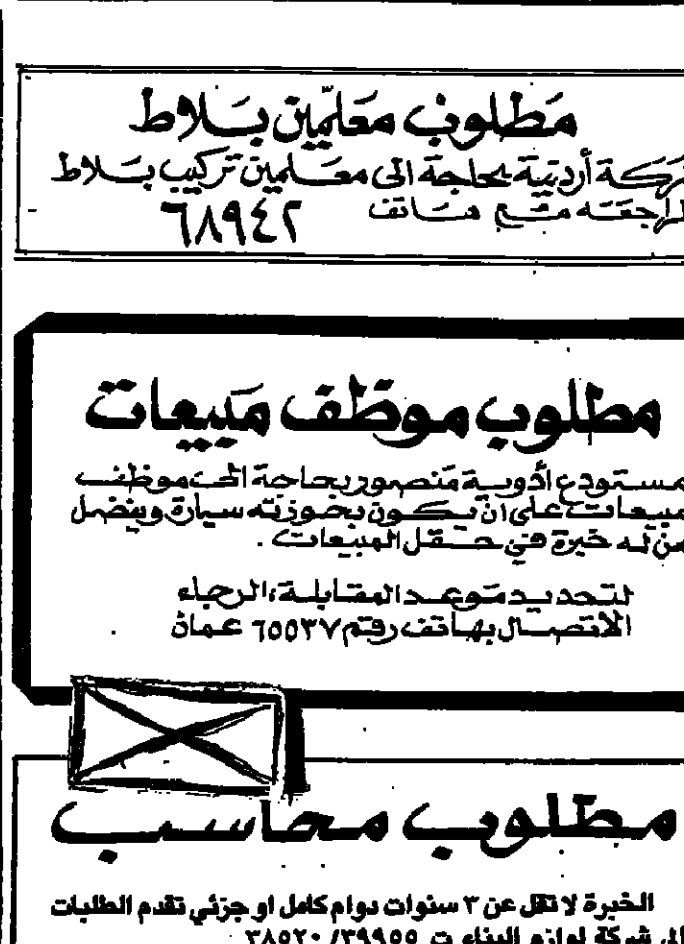 مطلوب معلمين بلاط
شركة أردنية بحاجة الى معلمين تركيب بلاط
المراجعه مع هاتف ٦٨٩٤٢
مطلوب موظف مبيعات
مستودع أدوية منصور بحاجة الى موظف
مبيعات على ان يكون بحوزته سيارة ويفضل
من له خبرة في حقل المبيعات .
لتحديد موعد المقابلة، الرجاء
الاتصال بهاتف رقم ٦٥٥٣٧ عمان
مطلوب محاسب
الخبرة لا تقل عن ٣ سنوات دوام كامل او جزئي تقدم الطلبات
الى شركة لوازم البناء ت ٣٩٩٥٥ / ٣٨٥٢٠